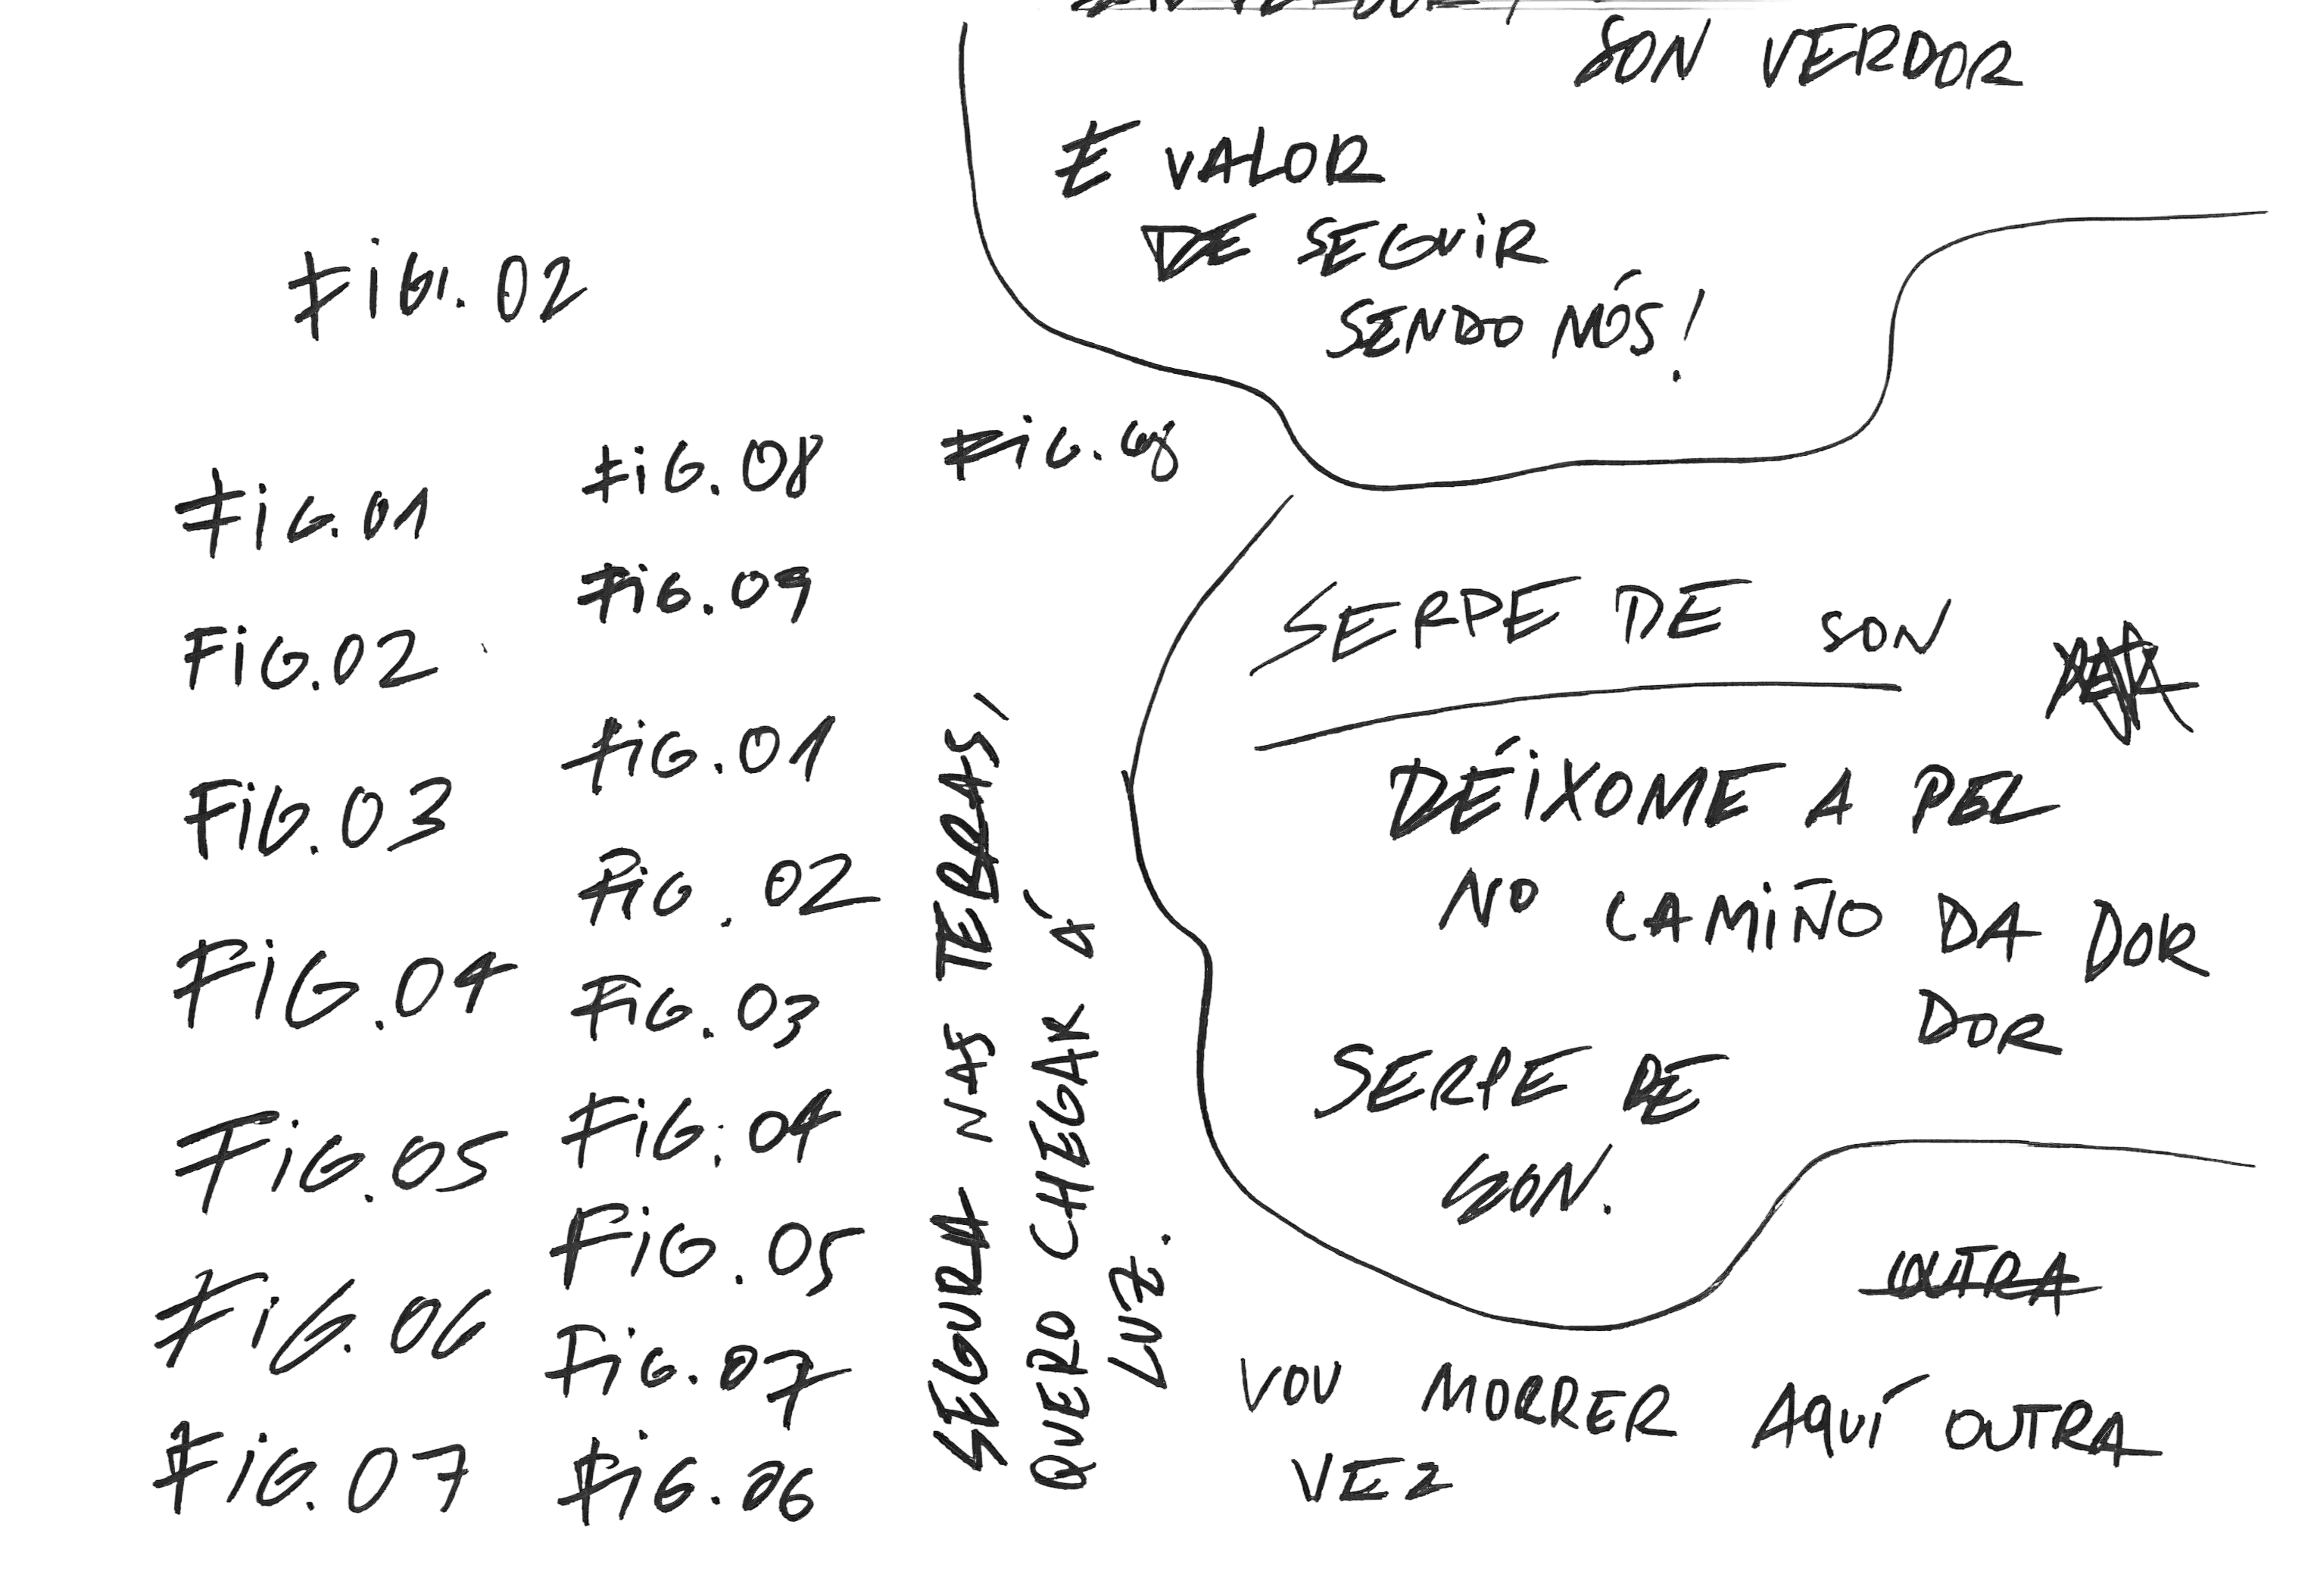 SON VERDOR
E VALOR
DE SEGUIR
SENDO NÓS!
FIG. 02
FIG. 01
FIG. 02
FIG. 03
FIG. 04
FIG. 05
FIG. 06
FIG. 07
FIG. 08
FIG. 09
FIG. 01
FIG. 02
FIG. 03
FIG. 04
FIG. 05
FIG. 07
FIG. 06
FIG.
SEGURA NAS TEBRAS,
QUERO CHEGAR Á
LUZ.
SERPE DE SON
DÉIXOME A PEL
NO CAMIÑO DA DOR
DOR
SERPE DE
SON.
OUTRA
VOU MORRER AQUÍ OUTRA
VEZ